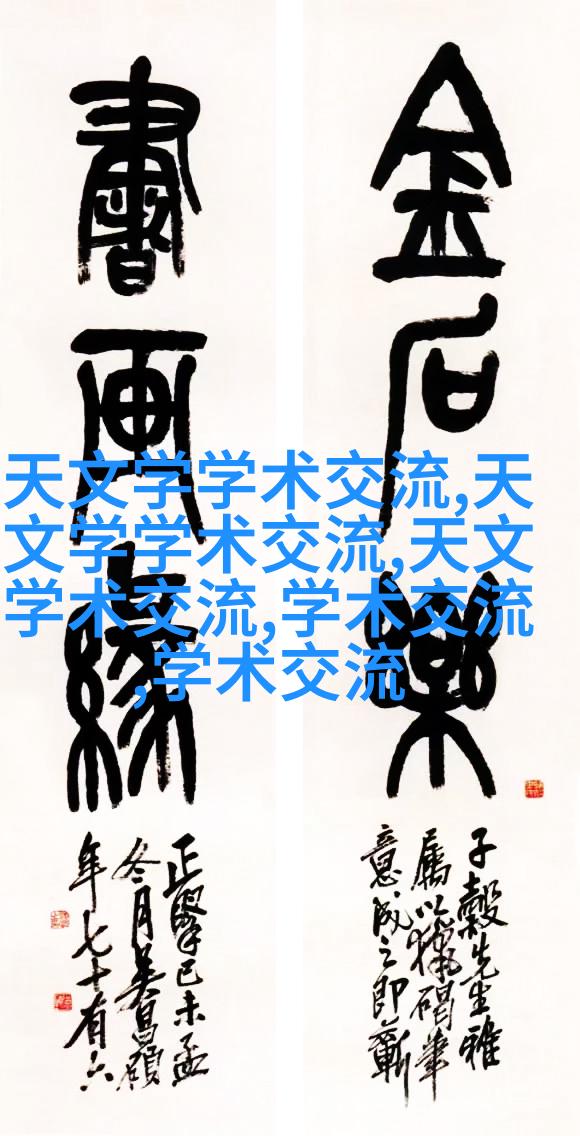 金石樂
子穀先生雅
屬以獵碣筆
意成之即蘄
書画緣
正 己未孟
冬月吳昌碩
年七十有六
天文学学术交流,天
文学学术交流,天文
学术交流,学术交流
,学术交流